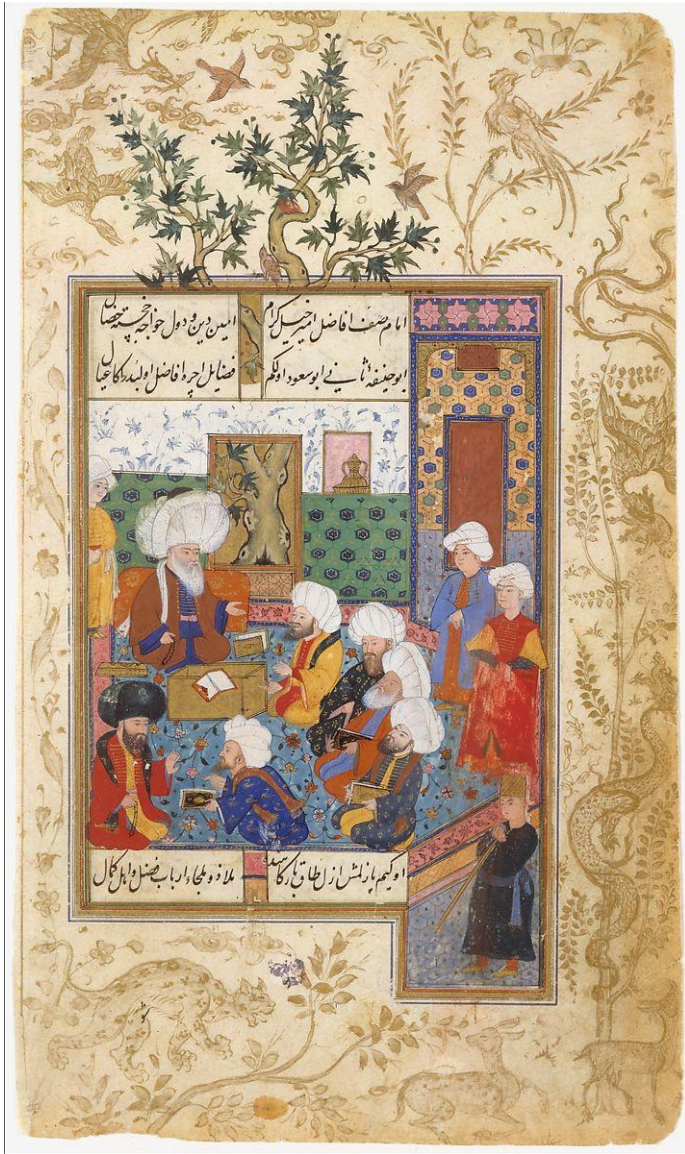 امام صف افاضل امیر خیل کرام امین دین و دول خواجه خجسته خصال
ابو حنیفه ثانی ابو سعود اولکم فضایل اچره افاضل اولبدر اکا عیال
اوکیم یازلمش ازل طاق بارکاهنده ملاذ و ملجاء ارباب فضل و اهل کمال